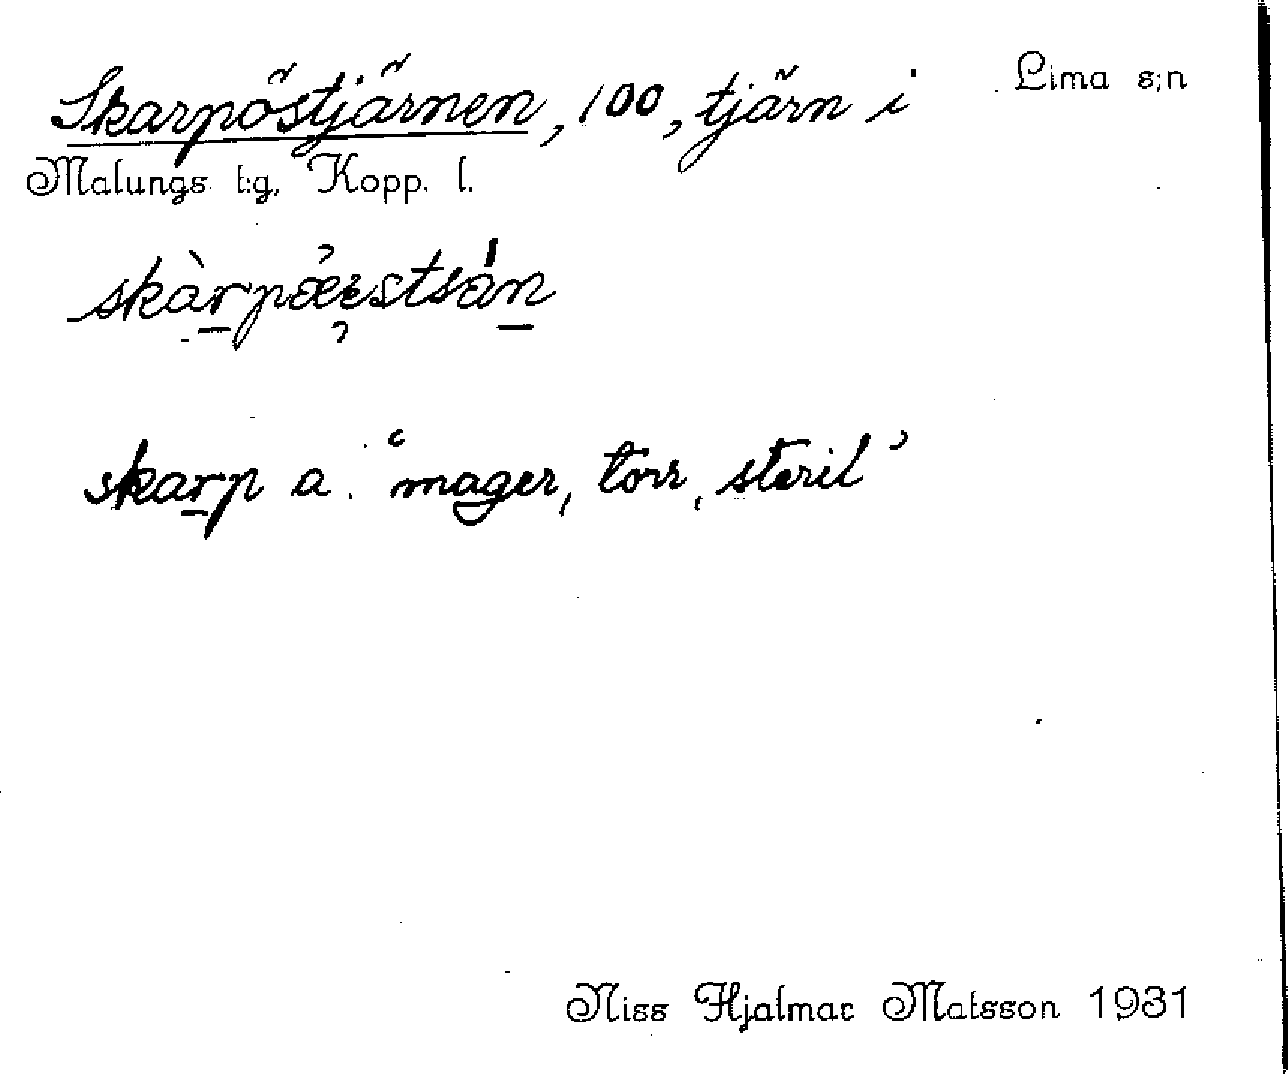 Skarpöstjärnen, 100, tjärn i Lima s:n
Malungs t:g, Kopp. l.
skarp a. ‘mager, torr, steril’
Niss Hjalmar Matsson 1931